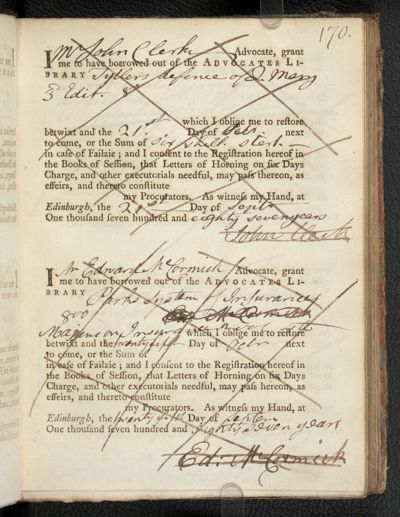 170.
I Mr John Clerk Advocate, grant
me to have borrowed out of the ADVOCATES LI-
BRARY Tytlers defence of Q. Mary
3 Edit. 8º
which I oblige me to restore
betwixt and the 21st Day of Octr next
to come, or the Sum of six shill: sterl:
in case of Failzie; and I consent to the Registration hereof in
the Books of Session, that Letters of Horning on six Days
Charge, and other executorials needful, may pass thereon, as
effeirs, and thereto constitute
my Procurators. As witness my Hand, at
Edinburgh, the 21st Day of Septr
One thousand seven hundred and eighty seven years
John Clerk
I Mr Edward McCormick Advocate, grant
me to have borrowed out of the ADVOCATES LI-
BRARY Parks system of Insurances
8vo
Magens on Insur which I oblige me to restore
betwixt and the twenty first Day of Octr next
to come, or the Sum of
in case of Failzie; and I consent to the Registration hereof in
the Books of Session, that Letters of Horning on six Days
Charge, and other executorials needful, may pass thereon, as
effeirs, and thereto constitute
my Procurators. As witness my Hand, at
Edinburgh, the twenty Day of Septem
One thousand seven hundred and eighty seven years
Ed: McCormick